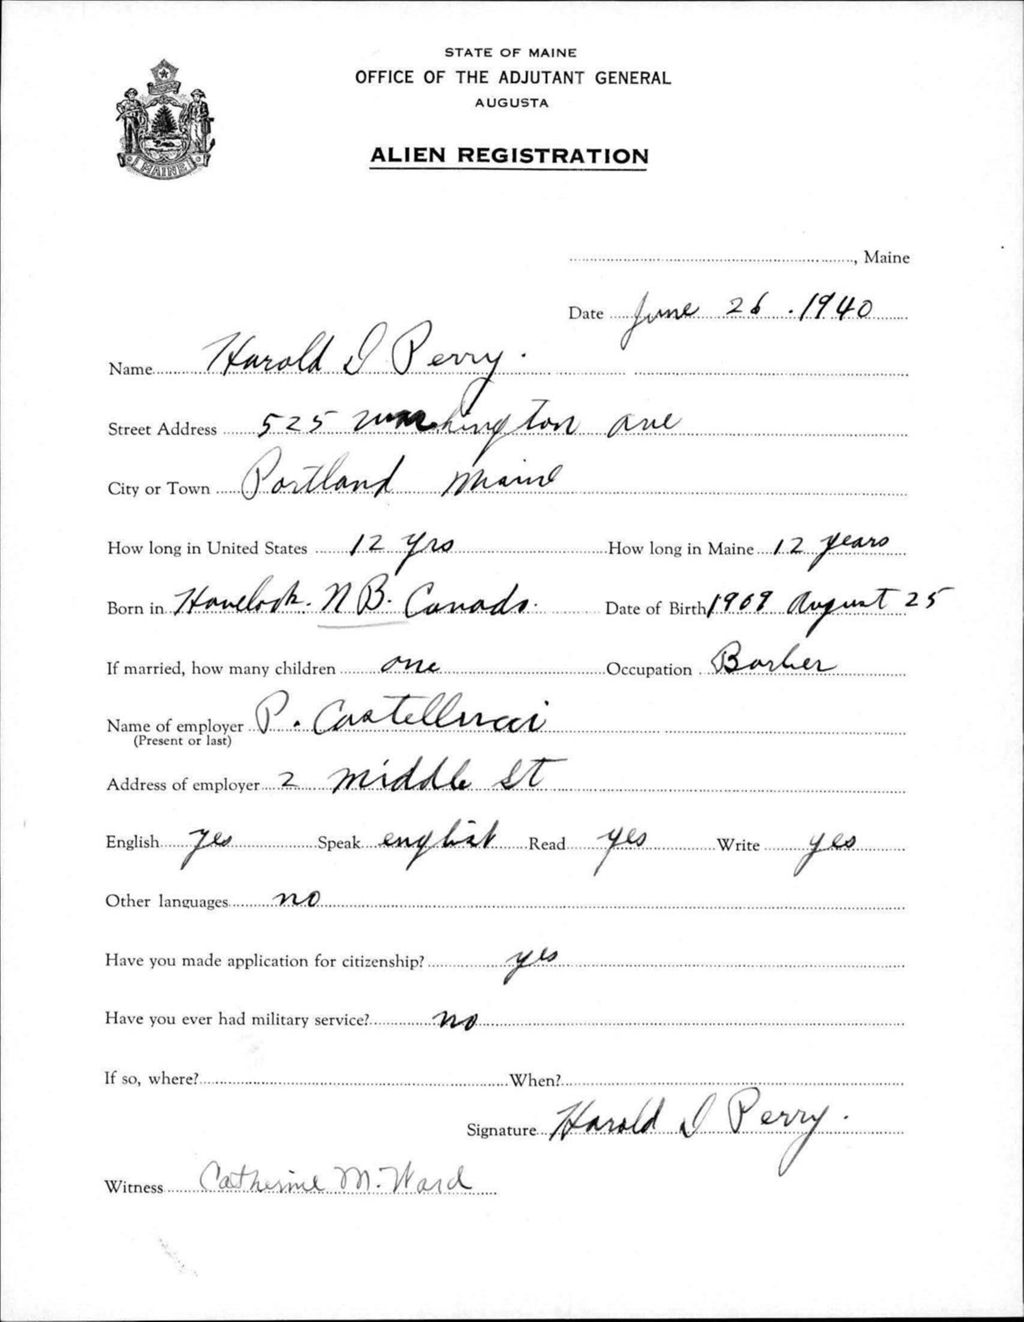 STATE OF MAINE
OFFICE OF THE ADJUTANT GENERAL
AUGUSTA
ALIEN REGISTRATION
MAINE
, Maine
Date June 26 . 1940
Name Harold I Perry.
Street Address 525 Washington Ave
City or Town Portland Maine
How long in United States 12 yrs How long in Maine 12 years
Born in Havelock. N B. Canada. Date of Birth 1909 August 25
If married, how many children one Occupation Barber
Name of employer P. Castellucci
(Present or last)
Address of employer 2 Middle St
English yes Speak english Read yes Write yes
Other languages no
Have you made application for citizenship? yes
Have you ever had military service? no
If so, where? When?
Signature Harold I Perry.
Witness Catherine M. Ward